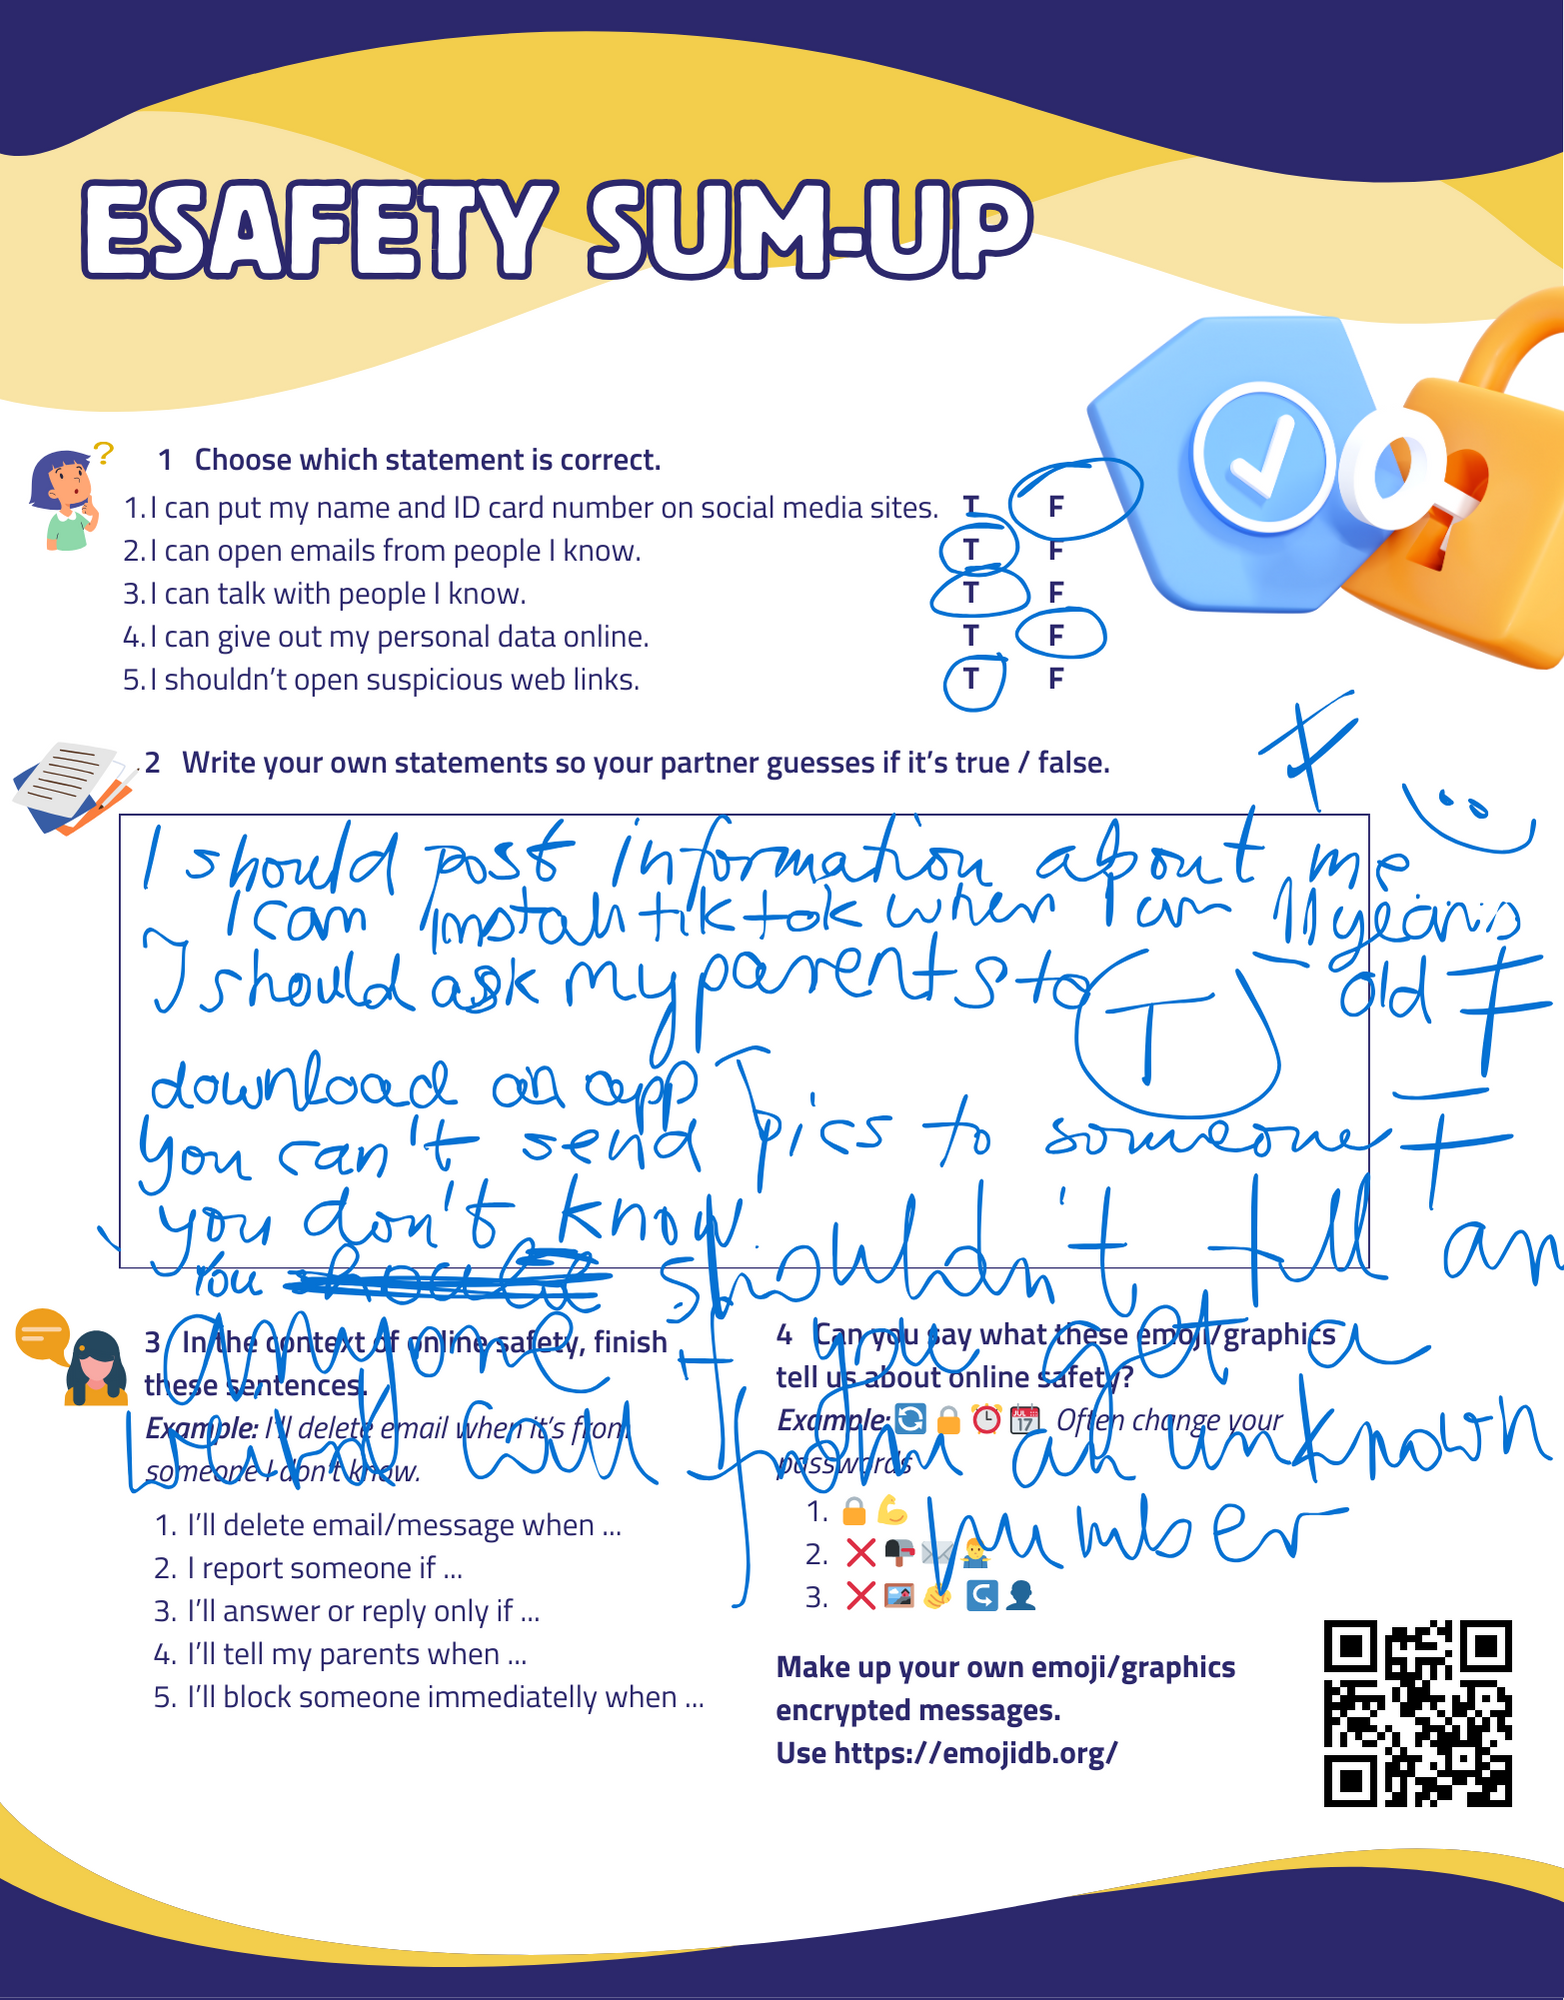 ESAFETY SUM-UP
1 Choose which statement is correct.
1. I can put my name and ID card number on social media sites. T F
2. I can open emails from people I know. T F
3. I can talk with people I know. T F
4. I can give out my personal data online. T F
5. I shouldn't open suspicious web links. T F
2 Write your own statements so your partner guesses if it's true / false.
F
I should post information about me
I can install tiktok when I am 11 years
old F
I should ask my parents to
T
download an app
You can't send pics to someone T
you don't know
You shouldn't tell an
anyone if you get a
weird call from an unknown
number
F
3 In the context of online safety, finish
these sentences.
Example: I'll delete email when it's from
someone I don't know.
1. I'll delete email/message when ...
2. I report someone if ...
3. I'll answer or reply only if ...
4. I'll tell my parents when ...
5. I'll block someone immediatelly when ...
4 Can you say what these emoji/graphics
tell us about online safety?
Example: 🔄 🔒 ⏰ 📅 Often change your
passwords
1. 🔒 💪
2. ❌ 📭 ✉️ 🤷‍♂️
3. ❌ 🖼️ 🫴 ↪️ 👤
Make up your own emoji/graphics
encrypted messages.
Use https://emojidb.org/